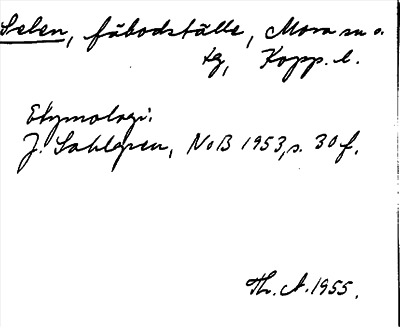 Selen, fäbodställe, Mora sn o.
tg, Kopp. l.
Etymologi:
J. Sahlgren, NoB 1953, s. 30 f.
Th. A. 1955.